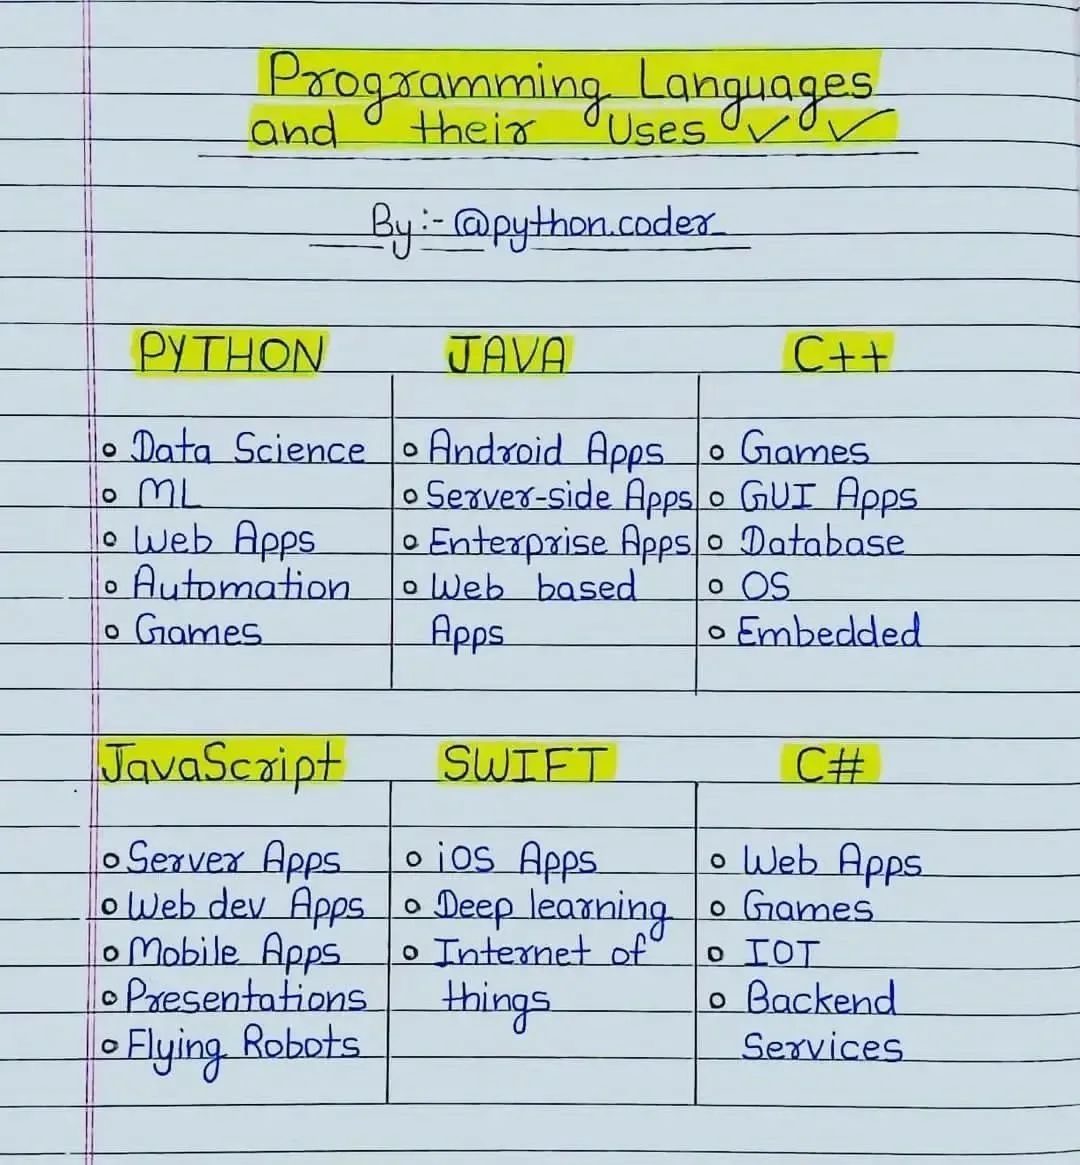 Programming Languages
and their Uses ✓ ✓
By:- @python.coder_
PYTHON
○ Data Science
○ ML
○ Web Apps
○ Automation
○ Games
JAVA
○ Android Apps
○ Server-side Apps
○ Enterprise Apps
○ Web based
Apps
C++
○ Games
○ GUI Apps
○ Database
○ OS
○ Embedded
JavaScript
○ Server Apps
○ Web dev Apps
○ Mobile Apps
○ Presentations
○ Flying Robots
SWIFT
○ iOS Apps
○ Deep learning
○ Internet of
things
C#
○ Web Apps
○ Games
○ IOT
○ Backend
Services